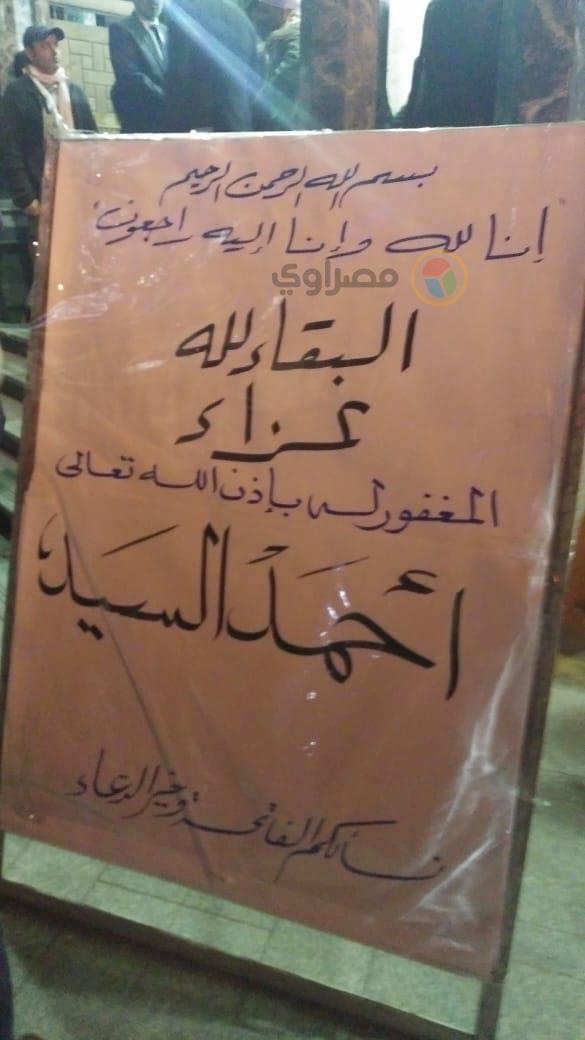 بسم الله الرحمن الرحيم
"إنا لله وإنا إليه راجعون"
مصراوي
البقاء لله
عزاء
المغفور له بإذن الله تعالى
أحمد السيد
نسألكم الفاتحة وخير الدعاء